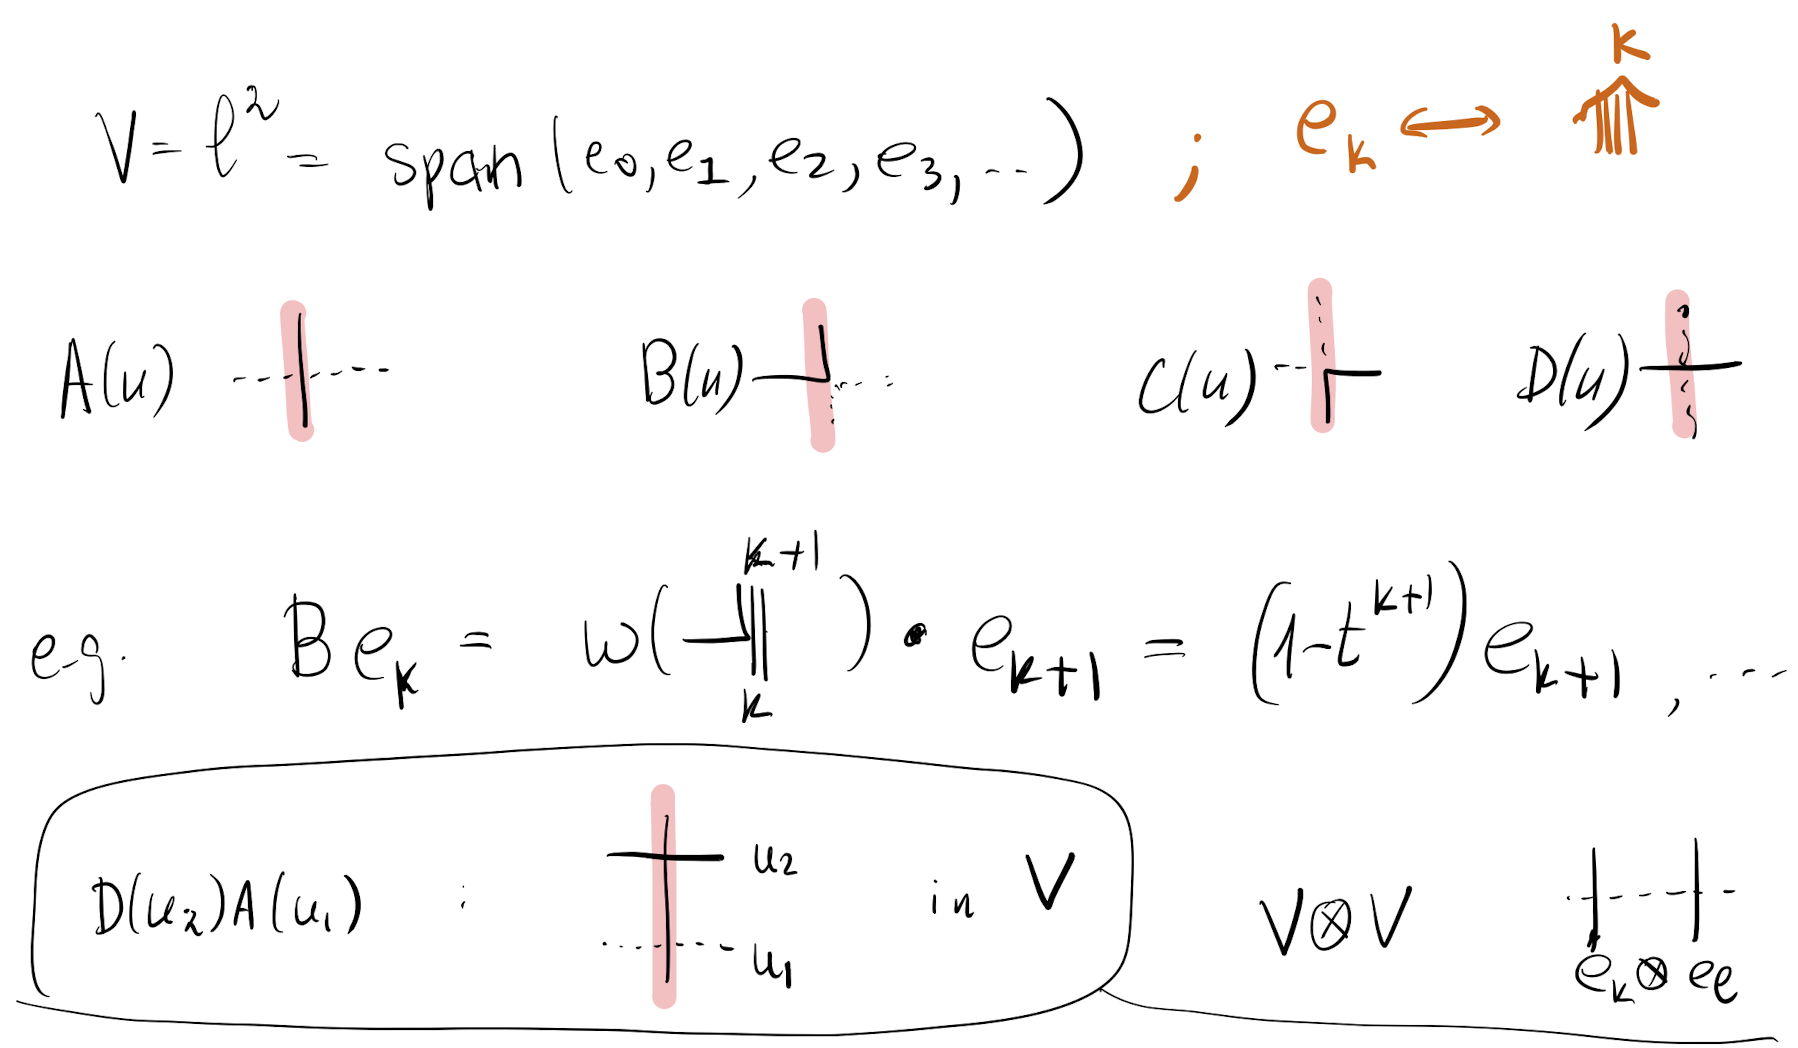 V = ℓ² = span(e₀, e₁, e₂, e₃, ...) ; eₖ ↔ k
A(u) B(u) C(u) D(u)
k+1
e.g. B eₖ = w( ) • eₖ₊₁ = (1-tᵏ⁺¹) eₖ₊₁, ...
k
D(u₂)A(u₁) : u₂ u₁ in V V⊗V
eₖ ⊗ eℓ